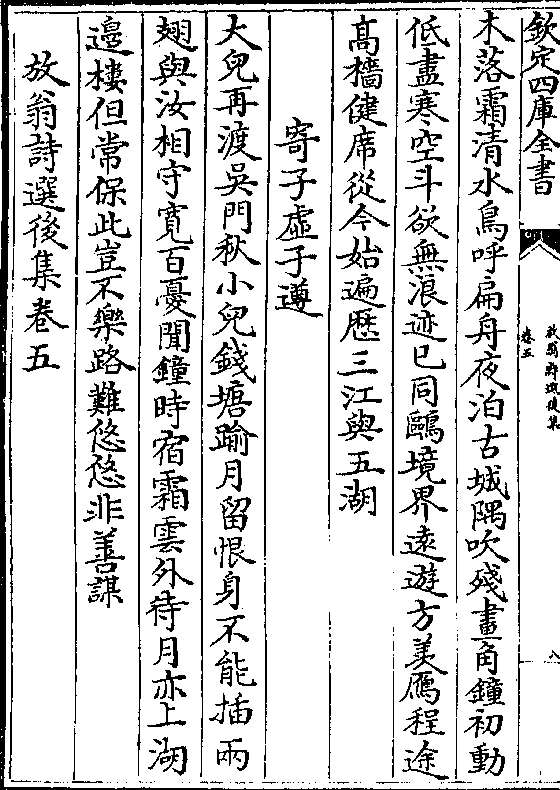 欽定四庫全書
放翁詩選後集
卷五
八
木落霜清水鳥呼扁舟夜泊古城隅吹殘畫角鐘初動
低盡寒空斗欲無浪迹已同鷗境界遠遊方羨鴈程途
高檣健席從今始遍歷三江與五湖
寄子虛子遵
大兒再渡吳門秋小兒錢塘踰月留恨身不能插兩
翅與汝相守寛百憂聞鐘時宿霜雲外待月亦上湖
邉棲但常保此豈不樂路難悠悠非善謀
放翁詩選後集卷五